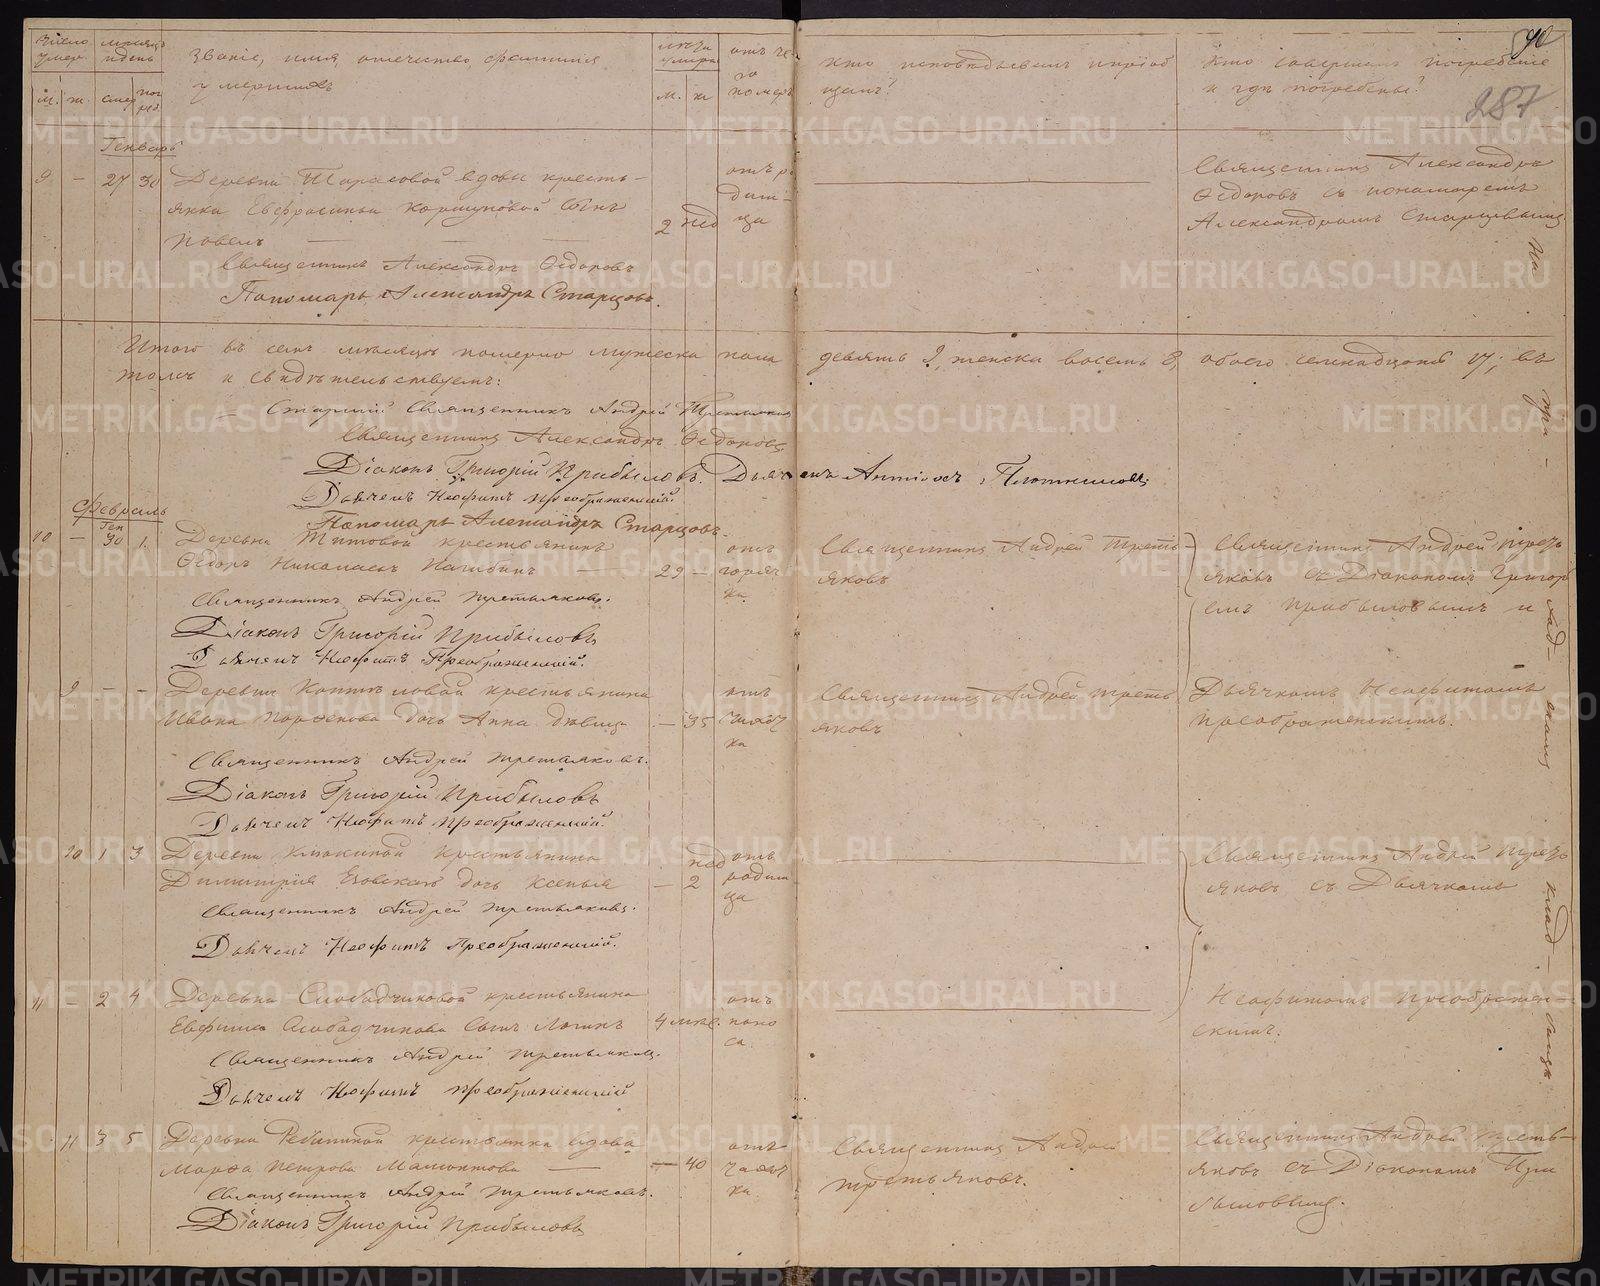 Число умер.
мѣсяцъ и день
Званіе, имя, отечество, фамилія умершихъ
лѣта умерш.
отъ чего померъ
Кто исповѣдывалъ и пріобщалъ?
Кто совершалъ погребеніе и гдѣ погребены?
М. ж. смер. пог­реб. М. ж.
287
Генварь
9 — 27 30 Деревни Тарасовой вдовы кресть-
янки Евфросиньи Коршуновой сынъ
Павелъ
2 нед
отъ родимца
Священникъ Александръ Ѳедоровъ съ пономаремъ Александромъ Старцевымъ.
Священникъ Александръ Ѳедоровъ
Пономарь Александръ Старцовъ.
Итого въ семъ мѣсяцѣ померло мужеска пола девять 9, женска восемь 8, обоего семнадцать 17; въ
томъ и свидѣтельствуемъ:
Старшій Священникъ Андрей Третьяковъ
Священникъ Александръ Ѳедоровъ
Діаконъ Григорій Прибыловъ. Дьячекъ Плотниковъ
Дьячекъ Неофитъ Преображенскій.
Пономарь Александръ Старцовъ.
Февраль
Ген
10 — 30 1. Деревни Титовой крестьянинъ
Ѳедоръ Николаевъ Нагибинъ — 29 —
отъ горячки
Священникъ Андрей Третьяковъ
Священникъ Андрей Третьяковъ съ Діакономъ Григорьемъ Прибыловымъ и
Священникъ Андрей Третьяковъ.
Діаконъ Григорій Прибыловъ
Дьячекъ Неофитъ Преображенскій.
9 — — Деревни крестьянина
Ивана дочь Анна дѣвица — 35
отъ чахотки
Священникъ Андрей Третьяковъ
Дьячкомъ Неофитомъ Преображенскимъ.
Священникъ Андрей Третьяковъ.
Діаконъ Григорій Прибыловъ
Дьячекъ Неофитъ Преображенскій.
10 1 3 Деревни крестьянина
Димитрія дочь Ксенья
нед
— 2
отъ родимца
Священникъ Андрей Третьяковъ съ Дьячкомъ
Священникъ Андрей Третьяковъ.
Дьячекъ Неофитъ Преображенскій.
11 — 2 4 Деревни Слободчиковой крестьянина
Евфима Слободчикова сынъ Логинъ 4 мѣс.
отъ поноса
Неофитомъ Преображенскимъ.
Священникъ Андрей Третьяковъ.
Дьячекъ Неофитъ Преображенскій
11 3 5 Деревни крестьянка вдова
Марѳа Петрова Мамонтова — 40
отъ чахотки.
Священникъ Андрей Третьяковъ.
Священникъ Андрей Третьяковъ съ Діакономъ Прибыловымъ.
Священникъ Андрей Третьяковъ.
Діаконъ Григорій Прибыловъ
На при-ход-скомъ клад-бищѣ.
METRIKI.GASO-URAL.RU